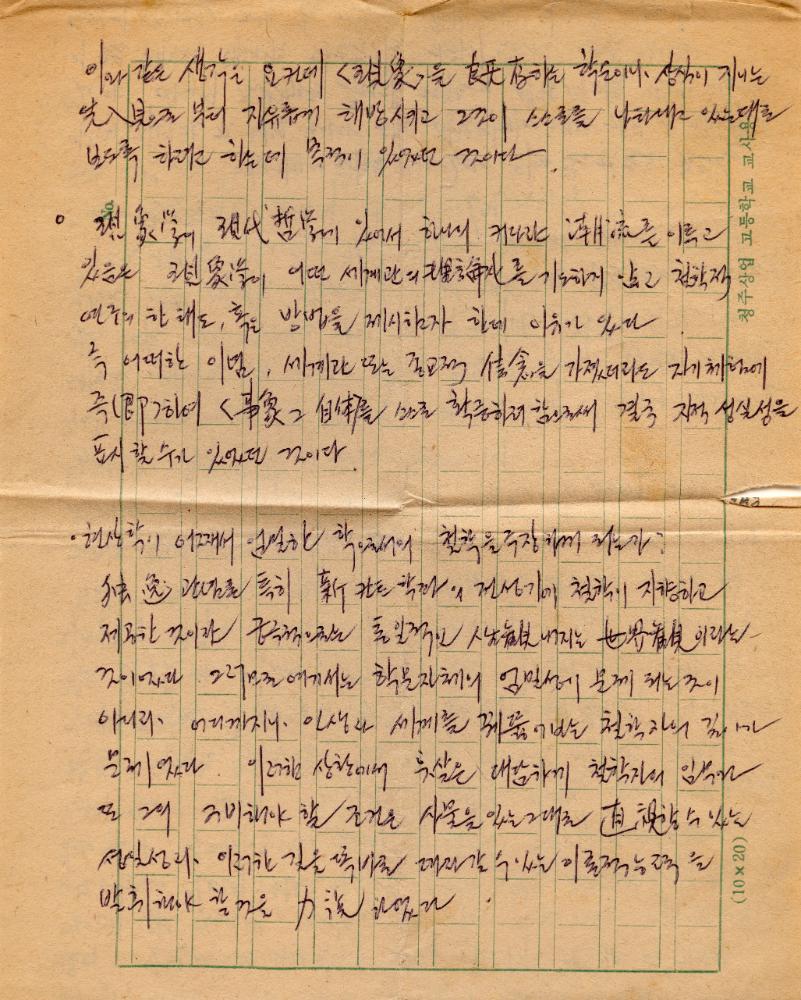 이와 같은 생각은 요컨데 <現象>을 하는 학도이나, 상식이 지니는
先入見으로 부터 자유롭게 해방시키고 그것이 스스로를 나타내고 있는대로
보도록 하려고 하는데 목적이 있었던 것이다.
○ 現象學이 現代哲學에 있어서 하나의 커다란 潮流를 이루고
있음은 現象學이 어떤 세계관의 理論化를 기도하지 않고 철학적
연구의 한 태도, 혹은 방법을 제시하고자 한데 이유가 있다
즉 어떠한 이념, 세계관 또는 종교적 信念을 가졌더라도 자기체험에
즉(卽)하여 <事象그 自体>를 스스로 함으로써 결국 지적 성실성을
표시할 수가 있었던 것이다.
• 현상학이 어째서 엄밀한 학으로서의 철학을 주장하게 되는가?
관념론 특히 新칸트학파의 전성기에 철학이 지향하고
제공한 것이란 궁극적으로는 통일적인 人生觀 내지는 世界觀이라는
것이었다 그러므로 여기서는 학문자체의 엄밀성이 문제 되는 것이
아니라, 어디까지나, 인생과 세계를 꿰뚫어보는 철학자의 깊이가
문제였다. 이러한 상황에서 훗살은 대담하게 철학자의 임무와
또 그의 구비해야 할 조건은 사물을 있는그대로 直觀할 수 있는
성실성과, 이러한 길을 똑바로 따라갈 수 있는 이론적능력을
발휘해야 할것을 力說하였다.
청주상업 고등학교 교사용
(10×20)
No.